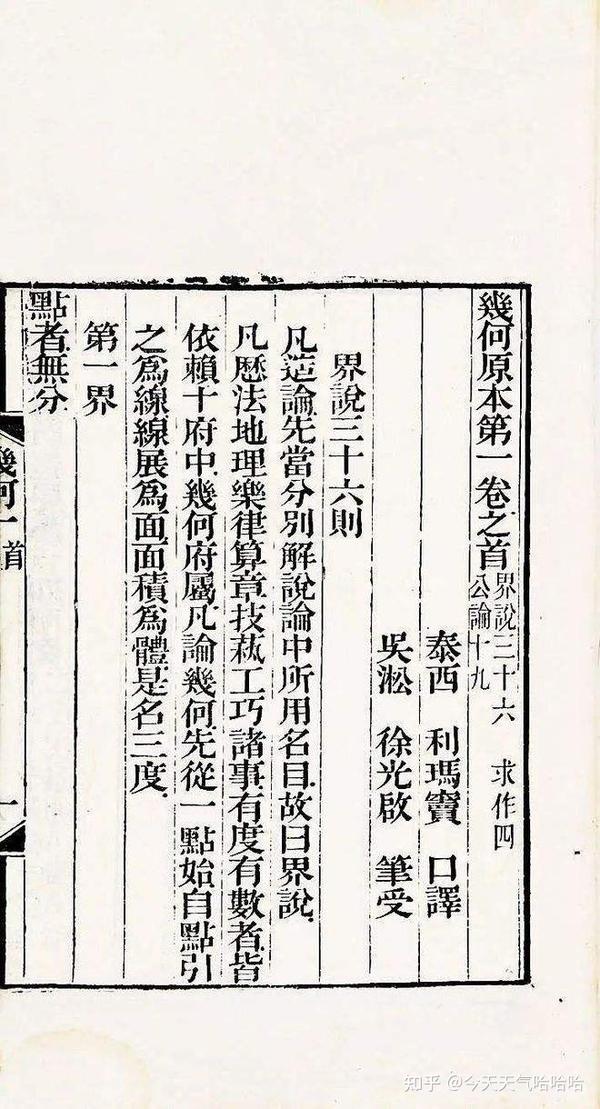 幾何原本第一卷之首 界說三十六 求作四
公論十九
泰西 利瑪竇 口譯
吳淞 徐光啟 筆受
界說三十六則
凡造論先當分別解說論中所用名目故曰界說
凡歷法地理樂律算章技藝工巧諸事有度有數者皆
依賴十府中幾何府屬凡論幾何先從一點始自點引
之為線線展為面面積為體是名三度
第一界
點者無分
幾何一首
一
知乎 @今天天气哈哈哈